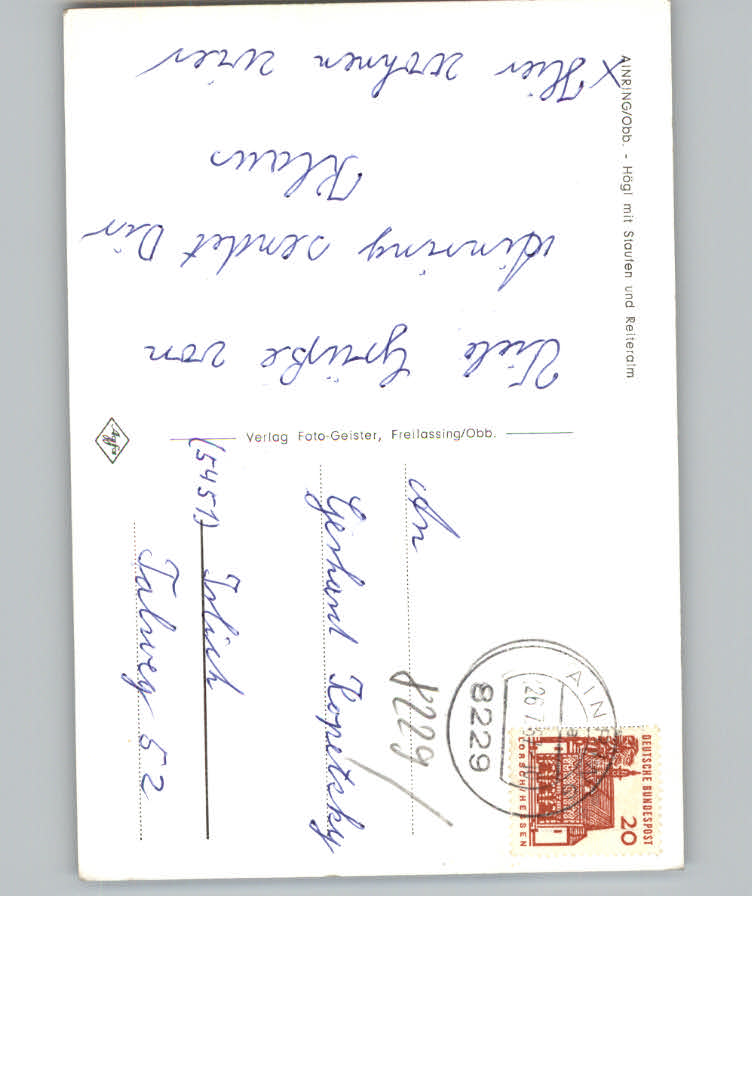 AINRING/Obb. - Högl mit Staufen und Reiteralm
Viele Grüße von
Ainring sendet Dir
Klaus
x Hier wohnen wier
Verlag Foto-Geister, Freilassing/Obb.
Agfa
An
Gerhard Kopetsky
(5451) Irlich
Talweg 52
8229
AINRING
8229
26.7.6
DEUTSCHE BUNDESPOST
20
LORSCH/HESSEN